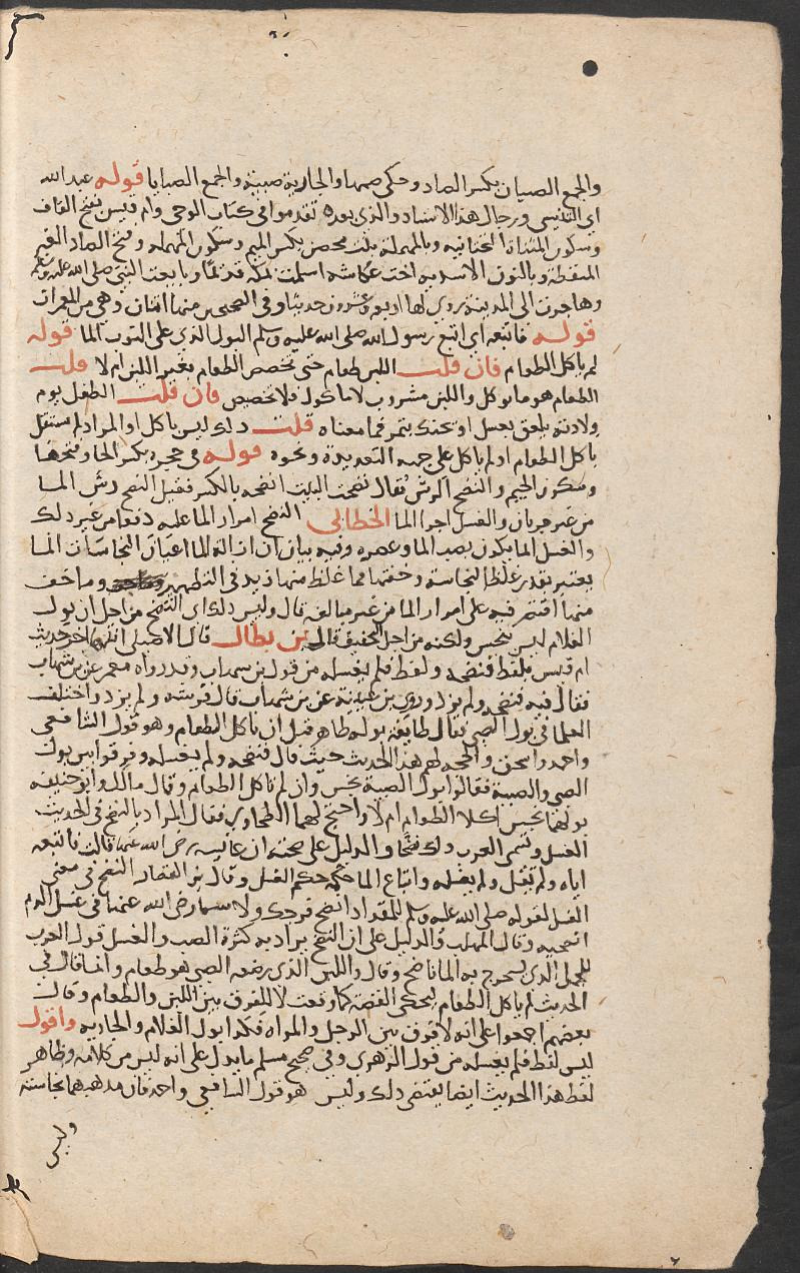 والجمع الصبيان بكسر الصاد وحكى ضمها والجارية صبية والجمع الصبايا قوله عبد الله
اي التنيسي ورجال هذا الاسناد والذي بعده تقدموا في كتاب الوحي وام قيس بفتح القاف
وسكون المثناة التحتانية وبالمهملة بنت محصن بكسر الميم وسكون المهملة وفتح الصاد الغير
المنقطة وبالنون الاسدية اخت عكاشة اسلمت بمكة قديما وبايعت النبي صلى الله عليه وسلم
وهاجرت الى المدينة روي لها اربعة وعشرون حديثا وفي الصحيحين منها اثنان وهي من المعمرات
قوله فاتبعه اي اتبع رسول الله صلى الله عليه وسلم البول الذي على الثوب الما قوله
لم ياكل الطعام فان قلت اللبن طعام حتى تخصص الطعام بغير اللبن ام لا قلت
الطعام هو ما يوكل واللبن مشروب لا ماكول فلا تخصيص فان قلت الطفل يوم
ولادته يلعق بعسل او يحنك بتمر فما معناه قلت ذلك ليس باكل او المراد لم يستقل
باكل الطعام او لم ياكل على جهة التغذية ونحوه قوله في حجره بكسر الحا وفتحها
وسكون الجيم والنضح الرش يقال نضحت البيت انضحه بالكسر فقيل النضح رش الما
من غير جريان والغسل اجرا الما الخطابي النضح امرار الما عليه دفعا من غير دلك
والغسل انما يكون بصب الما وعصره وفيه بيان ان ازالة اعيان النجاسات انما
يعتبر بقدر غلظ النجاسة وخفتها فما غلظ منها زيد في التطهير وما خف
منها اقتصر فيه على امرار الما من غير مبالغة قال وليس ذلك اي النضح من اجل ان بول
الغلام ليس بنجس ولكنه من اجل التخفيف قال بن بطال قال الاصيلي انتهى اخر حديث
ام قيس بلفظ فنضحه ولفظ فلم يغسله من قول بن شهاب وقد رواه معمر عن بن شهاب
فقال فيه فنضحه ولم يزد وروى بن عيينة عن بن شهاب قال فرشه ولم يزد واختلف
العلما في بول الصبي فقال طايفة بوله طاهر قبل ان ياكل الطعام وهو قول الشافعي
واحمد واسحق والحجة لهم هذا الحديث حيث قال فنضحه ولم يغسله وفرقوا بين بول
الصبي والصبية فقالوا بول الصبية نجس وان لم تاكل الطعام وقال مالك وابو حنيفة
بولهما نجس اكلا الطعام ام لا واحتج لهما الطحاوي فقال المراد بالنضح في الحديث
الغسل وتسمى العرب ذلك نضحا والدليل على صحته ان عائشة رضي الله عنها قالت فاتبعه
اياه ولم تقل ولم يغسله واتباع الما حكمه حكم الغسل وقال بن القصار النضح في معنى
الغسل لقوله صلى الله عليه وسلم للمقداد انضح فرجك ولاسما رضي الله عنها في غسل الدم
انضحيه وقال المهلب والدليل على ان النضح يراد به كثرة الصب والغسل قول العرب
للجمل الذي يستخرج به الما ناضح وقال واللبن الذي رضعه الصبي هو طعام وانما قال في
الحديث لم ياكل الطعام ليحكي القصة كما وقعت لا للفرق بين اللبن والطعام وقال
بعضهم اجمعوا على انه لا فرق بين الرجل والمراة فكذا بول الغلام والجارية واقول
ليس لفظ فلم يغسله من قول الزهري وفي صحيح مسلم ما يدل على انه ليس من كلامه وظاهر
لفظ هذا الحديث ايضا يقتضي ذلك وليس هو قول الشافعي واحمد فان مذهبهما نجاسته
وليس